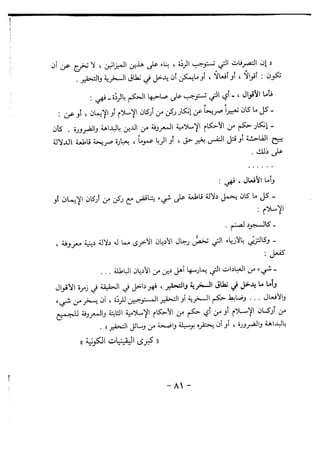 « إن التصرفات التي تستوجب الردة ، بناء على هذين الميزانين ، لا تخرج عن أن
تكون : أقوالاً ، أو أفعالاً ، أو ما يمكن أن يدخل في نطاق السخرية والتحقير .
فأما الأقوال ، - أي - التي تستوجب على صاحبها الحكم بالردة - فهي :
- كل ما كان تعبيراً صريحاً عن إنكار ركن من أركان الإسلام أو الايمان ، أو عن :
- إنكار حكم من الأحكام الإسلامية المعروفة من الدين بالبداهة والضرورة . كأن
يبيح الفاحشة أو قتل النفس بغير حق ، أو الربا عموماً ، بعبارة صريحة قاطعة الدلالة
على ذلك .
. . . . . .
وأما الأفعال ، فهي :
- كل ما كان يحمل دلالة قاطعة على شيء يتناقض مع ركن من أركان الايمان أو
الإسلام :
- كالسجود لصنم .
- وكالتزيي بالأزياء التي تخص رجال الأديان الأخرى مما له دلالة دينية معروفة ،
كفعل :
- شيء من العبادات التي يمارسها أهل دين من الأديان الباطلة . . .
وأما ما يدخل في نطاق السخرية والتحقير ، فهو داخل في الحقيقة في زمرة الأقوال
والأفعال . . . وضابط حكم السخرية أو التحقير المستوجبين للردة ، أن يسخر من شيء
من أركان الإسلام أو من أي حكم من الأحكام الإسلامية الثابتة والمعروفة للجميع
بالبداهة والضرورة ، أو أن يحتقره بوسيلة واضحة من وسائل التحقير » .
« كبرى اليقينيات الكونية »
- ٨١ -